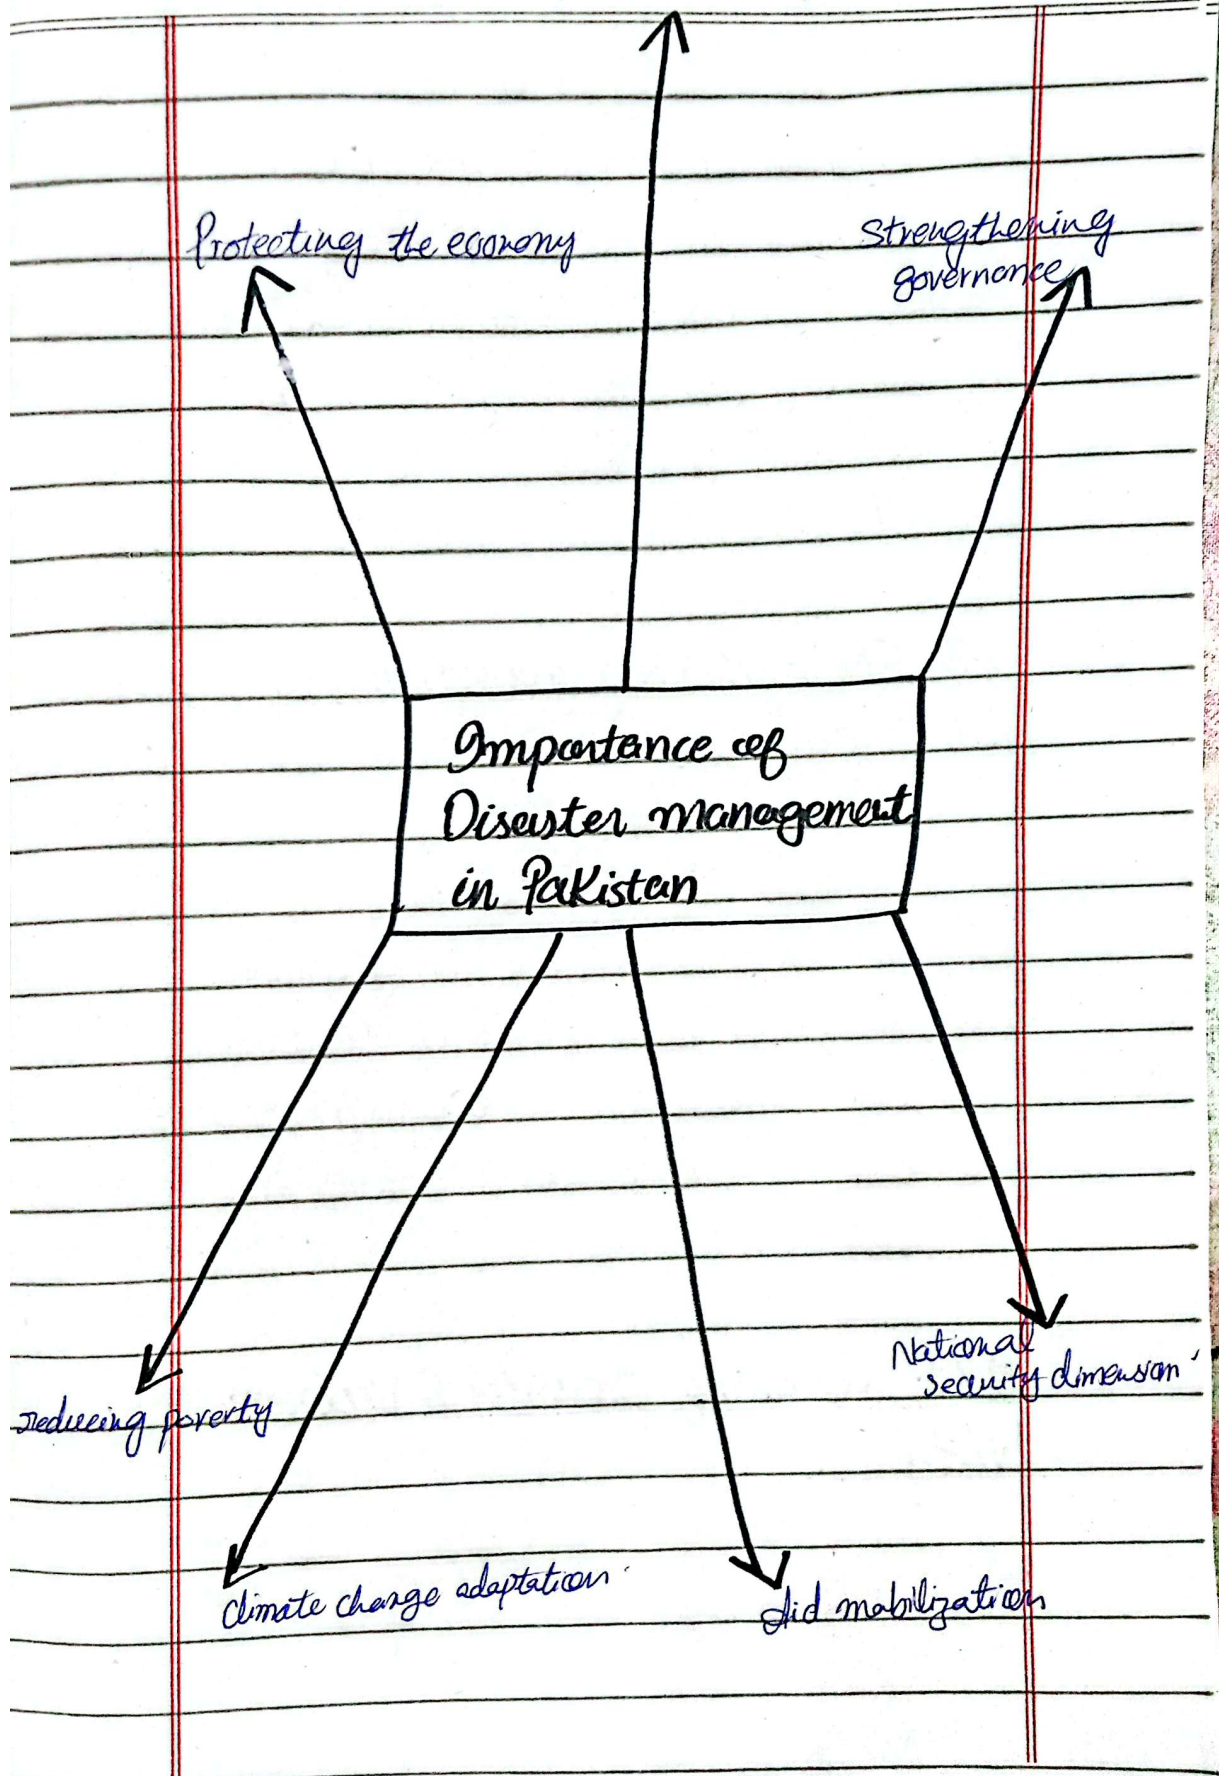 Protecting the economy
Strengthening
governance
Importance of
Disaster management
in Pakistan
National
security dimension
reducing poverty
Climate change adaptation
Aid mobilization